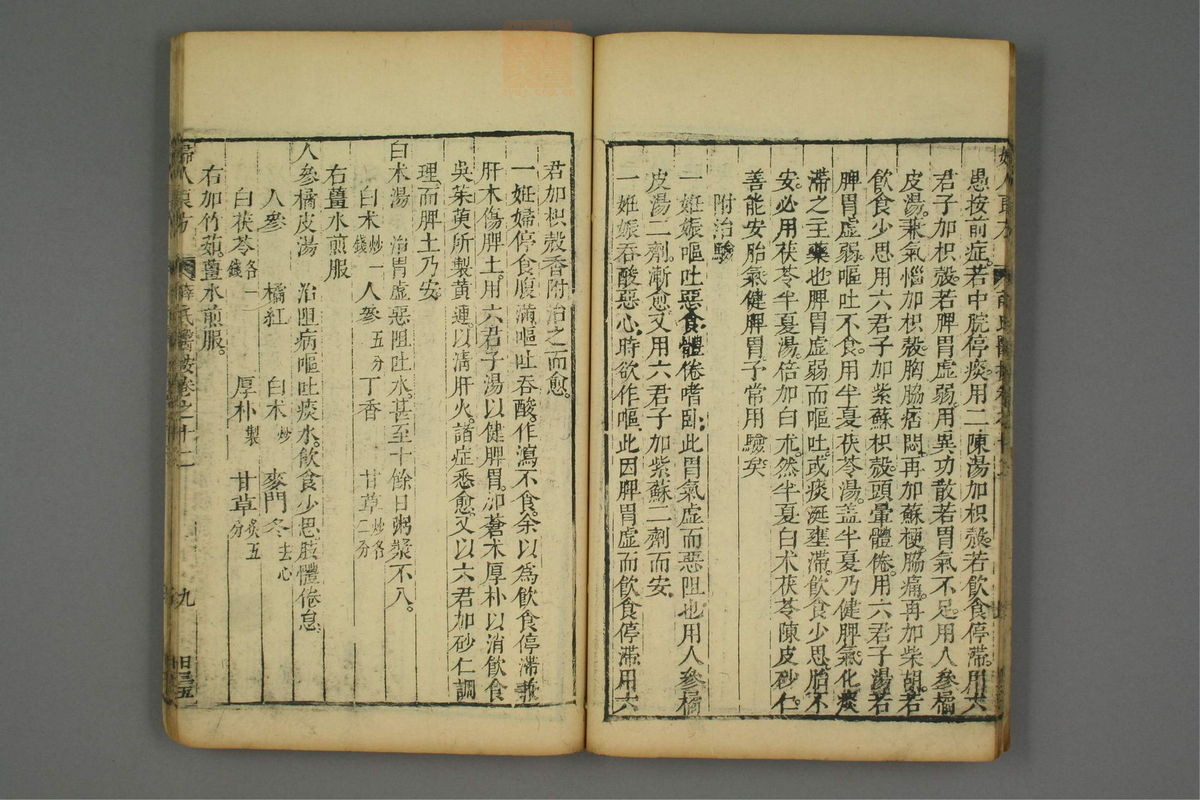 愚按前症。若中脘停痰。用二陳湯加枳殼。若飲食停滯。用六
君子加枳殼。若脾胃虛弱。用異功散。若胃氣不足。用人參橘
皮湯。兼氣惱加枳殼。胸脇痞悶。再加蘇梗。脇痛。再加柴胡。若
飲食少思。用六君子加紫蘇枳殼。頭暈體倦。用六君子湯。若
脾胃虛弱。嘔吐不食。用半夏茯苓湯。蓋半夏乃健脾氣。化痰
滯之主藥也。脾胃虛弱而嘔吐。或痰涎壅滯。飲食少思。胎不
安。必用茯苓半夏湯。倍加白朮。然半夏白朮茯苓陳皮砂仁。
善能安胎氣。健脾胃。予常用驗矣
附治驗
一妊娠嘔吐惡食。體倦嗜臥。此胃氣虛而惡阻也。用人參橘
皮湯二劑漸愈。又用六君子加紫蘇二劑而安
一妊娠吞酸惡心。時欲作嘔。此因脾胃虛而飲食停滯。用六
君加枳殼香附治之而愈。
一妊婦停食腹滿。嘔吐吞酸。作瀉不食。余以爲飲食停滯。兼
肝木傷脾土。用六君子湯以健脾胃。加蒼朮厚朴以消飲食
吳茱萸所製黃連。以清肝火。諸症悉愈。又以六君加砂仁調
理而脾土乃安。
白朮湯 治胃虛惡阻吐水。甚至十餘日粥漿不入。
白朮炒一錢 人參五分 丁香 甘草炒各二分
右薑水煎服
人參橘皮湯 治阻病嘔吐痰水。飲食少思。肢體倦怠。
人參 橘紅 白朮炒 麥門冬去心
白茯苓各一錢 厚朴製 甘草炙五分
右加竹茹。薑水煎服。
婦人良方 薛氏醫按卷之十二 九